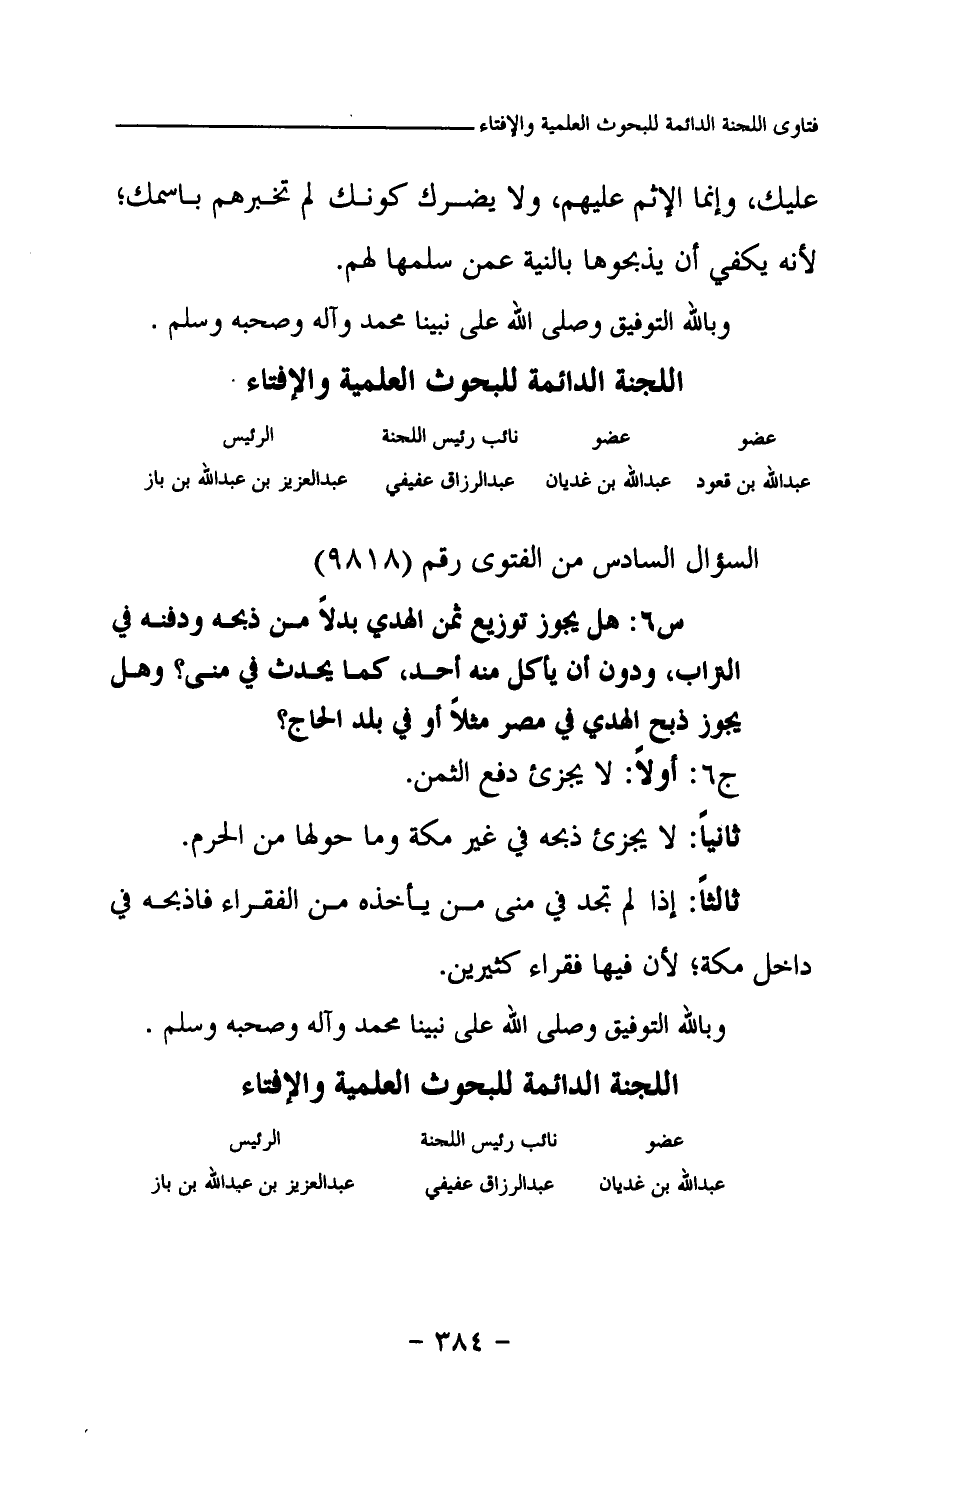 فتاوى اللجنة الدائمة للبحوث العلمية والإفتاء
عليك، وإنما الإثم عليهم، ولا يضرك كونك لم تخبرهم باسمك؛
لأنه يكفي أن يذبحوها بالنية عمن سلمها لهم.
وبالله التوفيق وصلى الله على نبينا محمد وآله وصحبه وسلم .
اللجنة الدائمة للبحوث العلمية والإفتاء
عضو عضو نائب رئيس اللجنة الرئيس
عبدالله بن قعود عبدالله بن غديان عبدالرزاق عفيفي عبدالعزيز بن عبدالله بن باز
السؤال السادس من الفتوى رقم (٩٨١٨)
س٦: هل يجوز توزيع ثمن الهدي بدلاً من ذبحه ودفنه في
التراب، ودون أن يأكل منه أحد، كما يحدث في منى؟ وهل
يجوز ذبح الهدي في مصر مثلاً أو في بلد الحاج؟
ج٦: أولاً: لا يجزئ دفع الثمن.
ثانياً: لا يجزئ ذبحه في غير مكة وما حولها من الحرم.
ثالثاً: إذا لم تجد في منى من يأخذه من الفقراء فاذبحه في
داخل مكة؛ لأن فيها فقراء كثيرين.
وبالله التوفيق وصلى الله على نبينا محمد وآله وصحبه وسلم .
اللجنة الدائمة للبحوث العلمية والإفتاء
عضو نائب رئيس اللجنة الرئيس
عبدالله بن غديان عبدالرزاق عفيفي عبدالعزيز بن عبدالله بن باز
- ٣٨٤ -